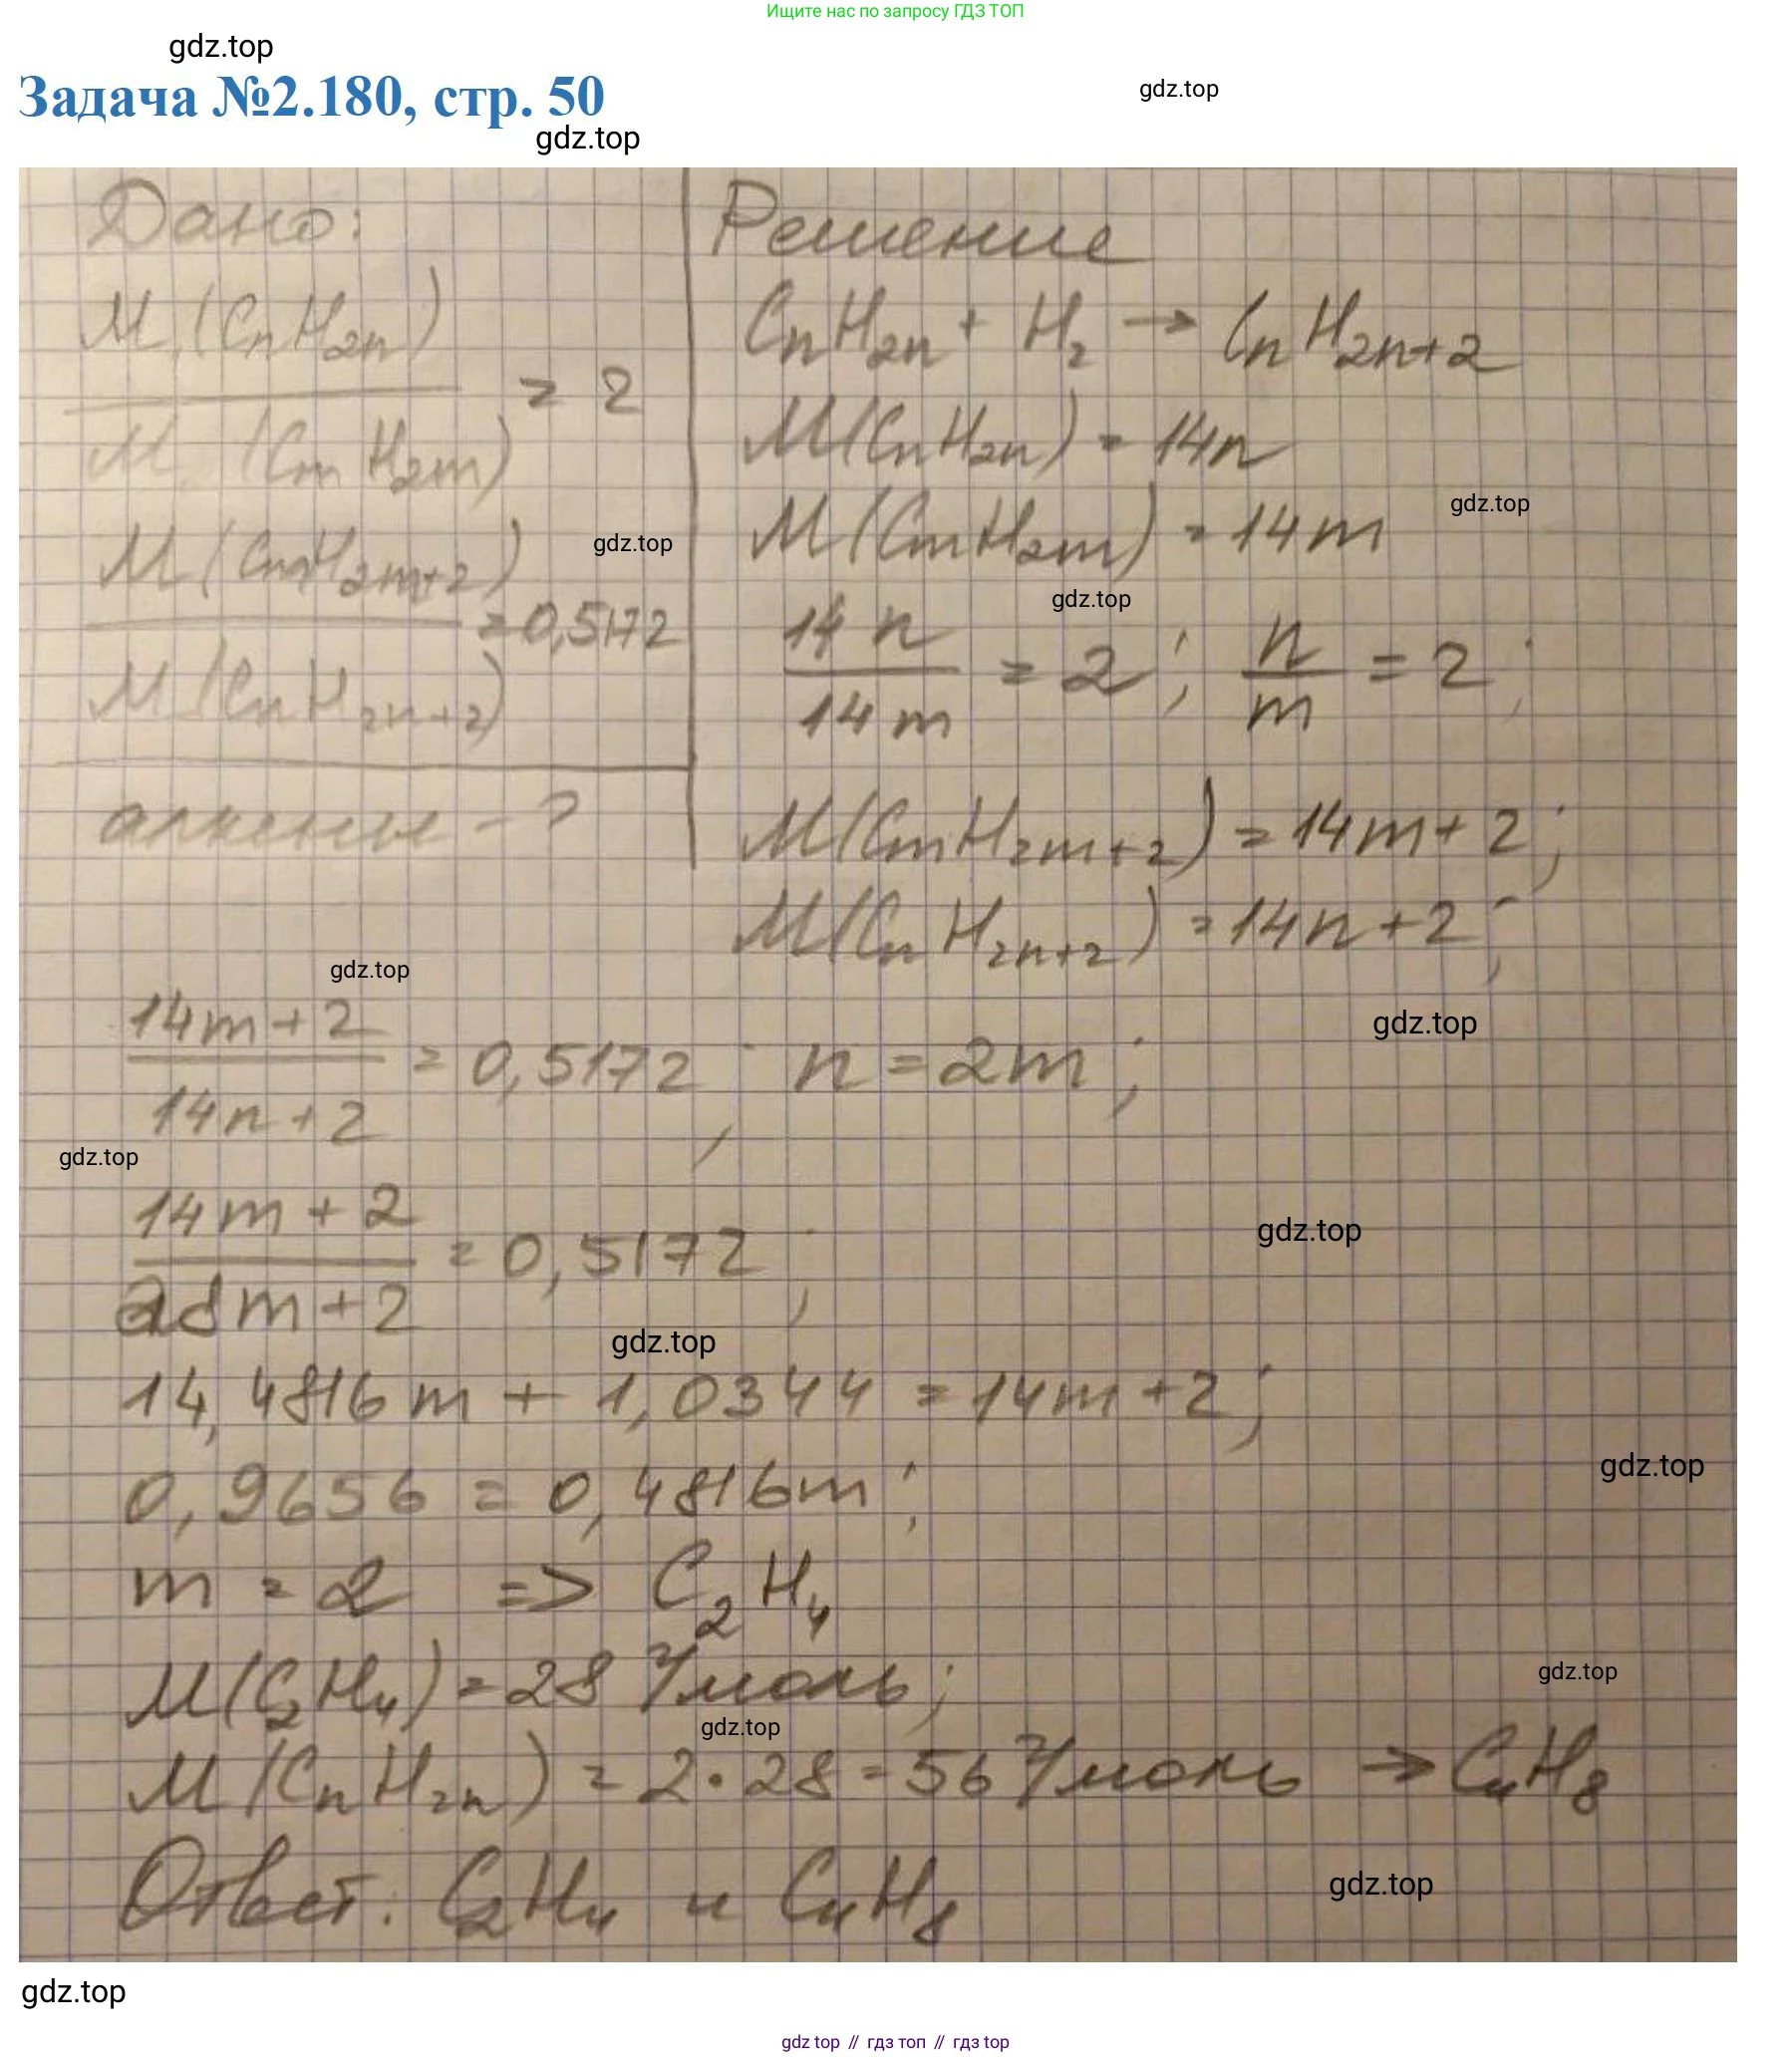 Ищите нас по запросу ГДЗ ТОП
gdz.top
Задача №2.180, стр. 50
gdz.top
gdz.top
Дано:
M (CnH2n)
/ M (CmH2m) = 2
M (CmH2m+2)
/ M (CnH2n+2) = 0,5172
gdz.top
алкены - ?
Решение
CnH2n + H2 → CnH2n+2
M(CnH2n) = 14n
M(CmH2m) = 14m
gdz.top
gdz.top
14n / 14m = 2; n / m = 2;
M(CmH2m+2) = 14m+2;
M(CnH2n+2) = 14n+2;
gdz.top
gdz.top
14m+2 / 14n+2 = 0,5172; n = 2m;
gdz.top
14m+2 / 28m+2 = 0,5172;
gdz.top
gdz.top
14,4816m + 1,0344 = 14m+2;
gdz.top
0,9656 = 0,4816m;
m = 2 => C2H4
M(C2H4) = 28 г/моль;
gdz.top
gdz.top
M(CnH2n) = 2·28 = 56 г/моль → C4H8
Ответ: C2H4 и C4H8
gdz.top
gdz.top
gdz top // гдз топ // гдз top